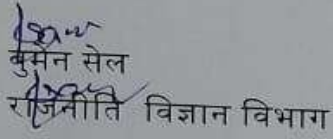 वुमेन सेल
राजनीति विज्ञान विभाग